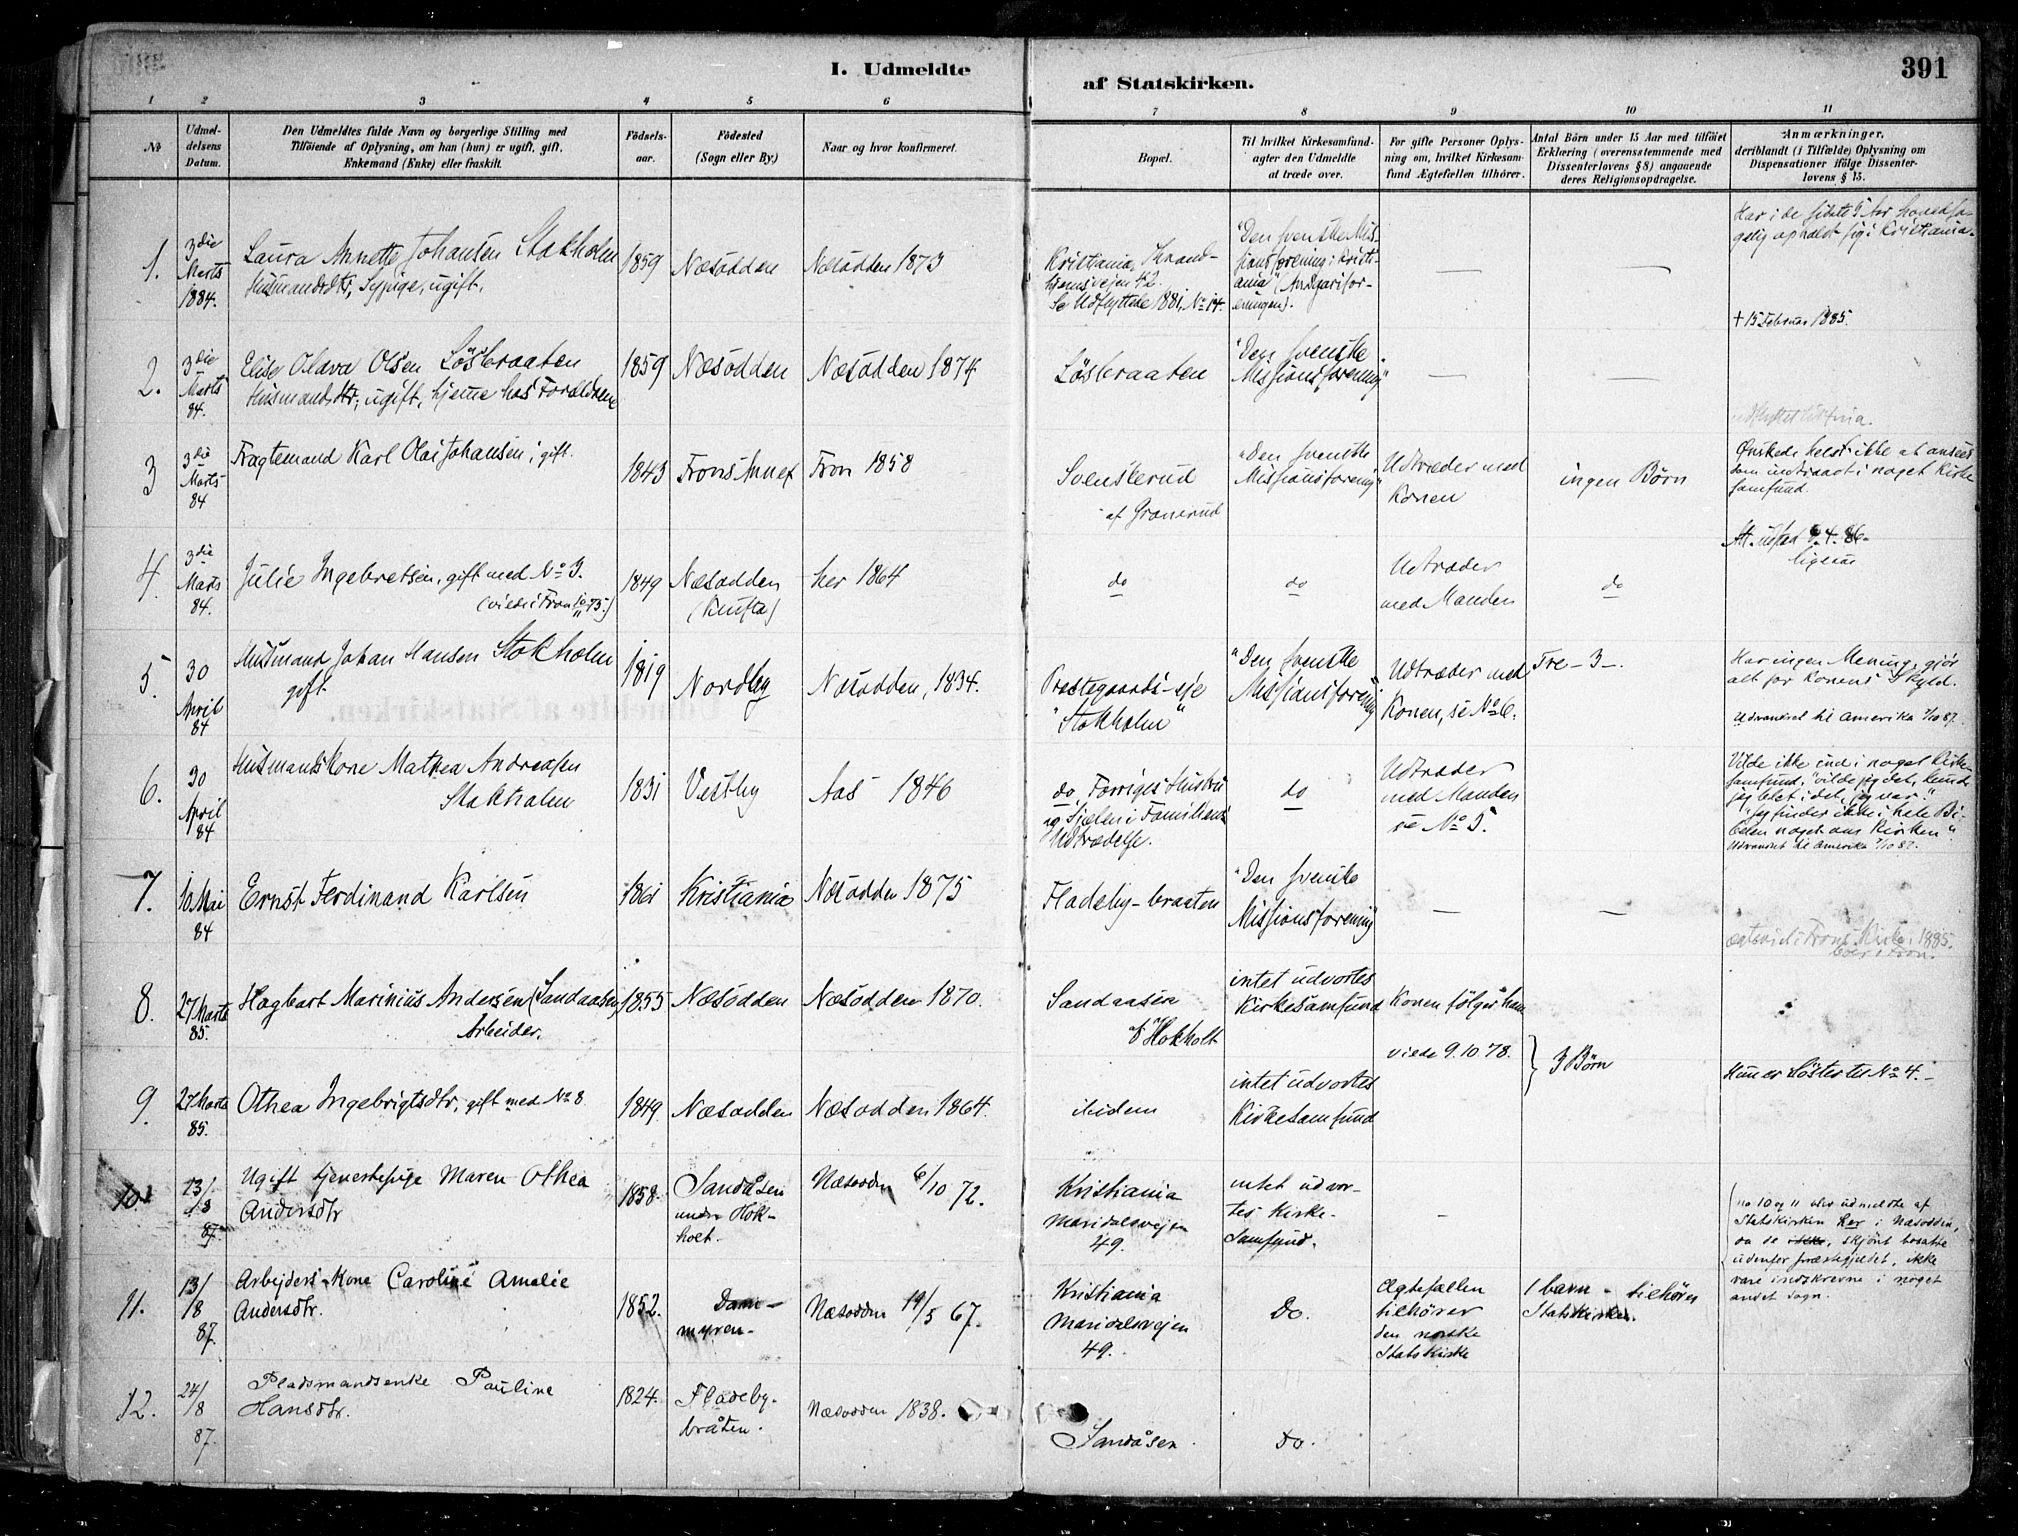 I. Udmeldte af Statskirken. 391
1 2 3 4 5 6 7 8 9 10 11
№
Udmel-
delsens
Datum.
Den Udmeldtes fulde Navn og borgerlige Stilling med
Tilføiende af Oplysning, om han (hun) er ugift, gift,
Enkemand (Enke) eller fraskilt.
Födsels-
aar.
Födested
(Sogn eller By.)
Naar og hvor konfirmeret.
Bopæl.
Til hvilket Kirkesamfund-
agter den Udmeldte
at træde over.
For gifte Personer Oplys-
ning om, hvilket Kirkesam-
fund Ægtefællen tilhörer.
Antal Börn under 15 Aar med tilföiet
Erklæring (overensstemmende med
Dissenterlovens § 8) angaaende
deres Religionsopdragelse.
Anmærkninger,
deriblandt (i Tilfælde) Oplysning om
Dispensationer ifölge Dissenter-
lovens § 15.
1.
3die
Marts
1884.
Laura Annette Johansen Stokholm
Husmandsdtr, Sypige, ugift.
1859
Næsodden
Næsodden 1873
Kristiania, Trond-
hjemsvejen 42.
Se Udflyttede 1881, No 14.
"Den svenske Mis-
sionsforening i Kristi-
ania" (Andgarifor-
eningen).
—
—
Har i de sidste 5 Aar hovedsa-
gelig opholdt sig i Kristiania.
† 15 Februar 1885.
2.
3die
Marts
84.
Elise Olava Olsen Løsbraaten
Husmandsdtr, ugift, hjemme hos Forældrene
1859
Næsodden
Næsodden 1874
Løsbraaten
"Den svenske
Missionsforening"
—
—
3
3die
Marts
84
Fragtemand Karl Olai Johansen, gift.
1843
Frons Annex
Fron 1858
Svenskerud
af Granerud
"Den svenske
Missionsforening"
Udtræder med
Konen
ingen Børn
Ønskede helst ikke at ansees
som indtraadt i noget Kirke
samfund.
Att. usted 9.4.86.
4.
3die
Marts
84.
Julie Ingebretsen, gift med No 3.
(viede i Fron 75.)
1849
Næsodden
(Klufta)
her 1864
do
do
Udtræder
med Manden
do
ligesaa
5.
30
April
84
Husmand Johan Hansen Stokholm
gift.
1819
Nordby
Næsodden, 1834.
Præstegaards-eje
"Stokholm"
"Den svenske
Missionsforening
Udtræder med
Konen, se No 6.
Tre - 3 -.
Har ingen Mening, gjør
alt for Konens Skyld.
Udvandret til Amerika 7/10 87.
6.
30
April
84
Husmandskone Mathea Andreasen
Stokholm
1831
Vestby
Aas 1846
do, Forriges Hustru
og Sjælen i Familiens
Udtrædelse.
do
Udtræder
med Manden
se No 5.
Vilde ikke ind i noget Kirke-
samfund; "vilde jeg det, kunde
jeg blet i det, jeg var."
"Jeg finder ikke i hele Bi-
belen noget om Kirken"
Udvandret til Amerika 7/10 87.
7.
10 Mai
84
Ernst Ferdinand Karlsen
1861
Kristiania
Næsodden 1875
Fladeby-braaten
"Den svenske
Missionsforening
—
—
ægteviet i Frons Kirke 1885.
boer i Fron.
8.
27 Marts
85.
Hagbart Marinius Andersen (Sandaasen)
Arbeider.
1855
Næsodden
Næsodden 1870.
Sandaasen
u/ Hokholt
intet udvortes
Kirkesamfund
Konen følger ham
viede 9.10.78.
3 Børn
9.
27 Marts
85.
Othea Ingebrigtsdtr, gift med No 8.
1849
Næsodden
Næsodden 1864.
ibidem
intet udvortes
Kirkesamfund
Hun er Søster til No 4. -
10.
13/
8
87.
Ugift tjenestepige Maren Othea
Andersdtr
1858.
Sandåsen
under Hok-
holt.
Næsodden 6/10 72.
Kristiania
Maridalsvejen
49.
intet udvor-
tes Kirke-
Samfund.
-
no 10 og 11 blev udmeldte af
Statskirken her i Næsodden,
da de ikke, skjønt bosatte
udenfor præstegjeldet, ikke
vare indskrevne i noget
andet sogn.
11.
13/
8
87.
Arbejders Kone Caroline Amalie
Andersdtr.
1852.
Dam-
myren-
Næsodden 19/5 67.
Kristiania
Maridalsvejen
49.
Do.
Ægtefællen
tilhører
den norske
Statskirke
1 barn - tilhører
Statskirken.
12.
24/
8
87.
Pladsmandsenke Pauline
Hansdtr.
1824.
Fladeby-
bråten.
Næsodden 1838.
Sandåsen.
Do.